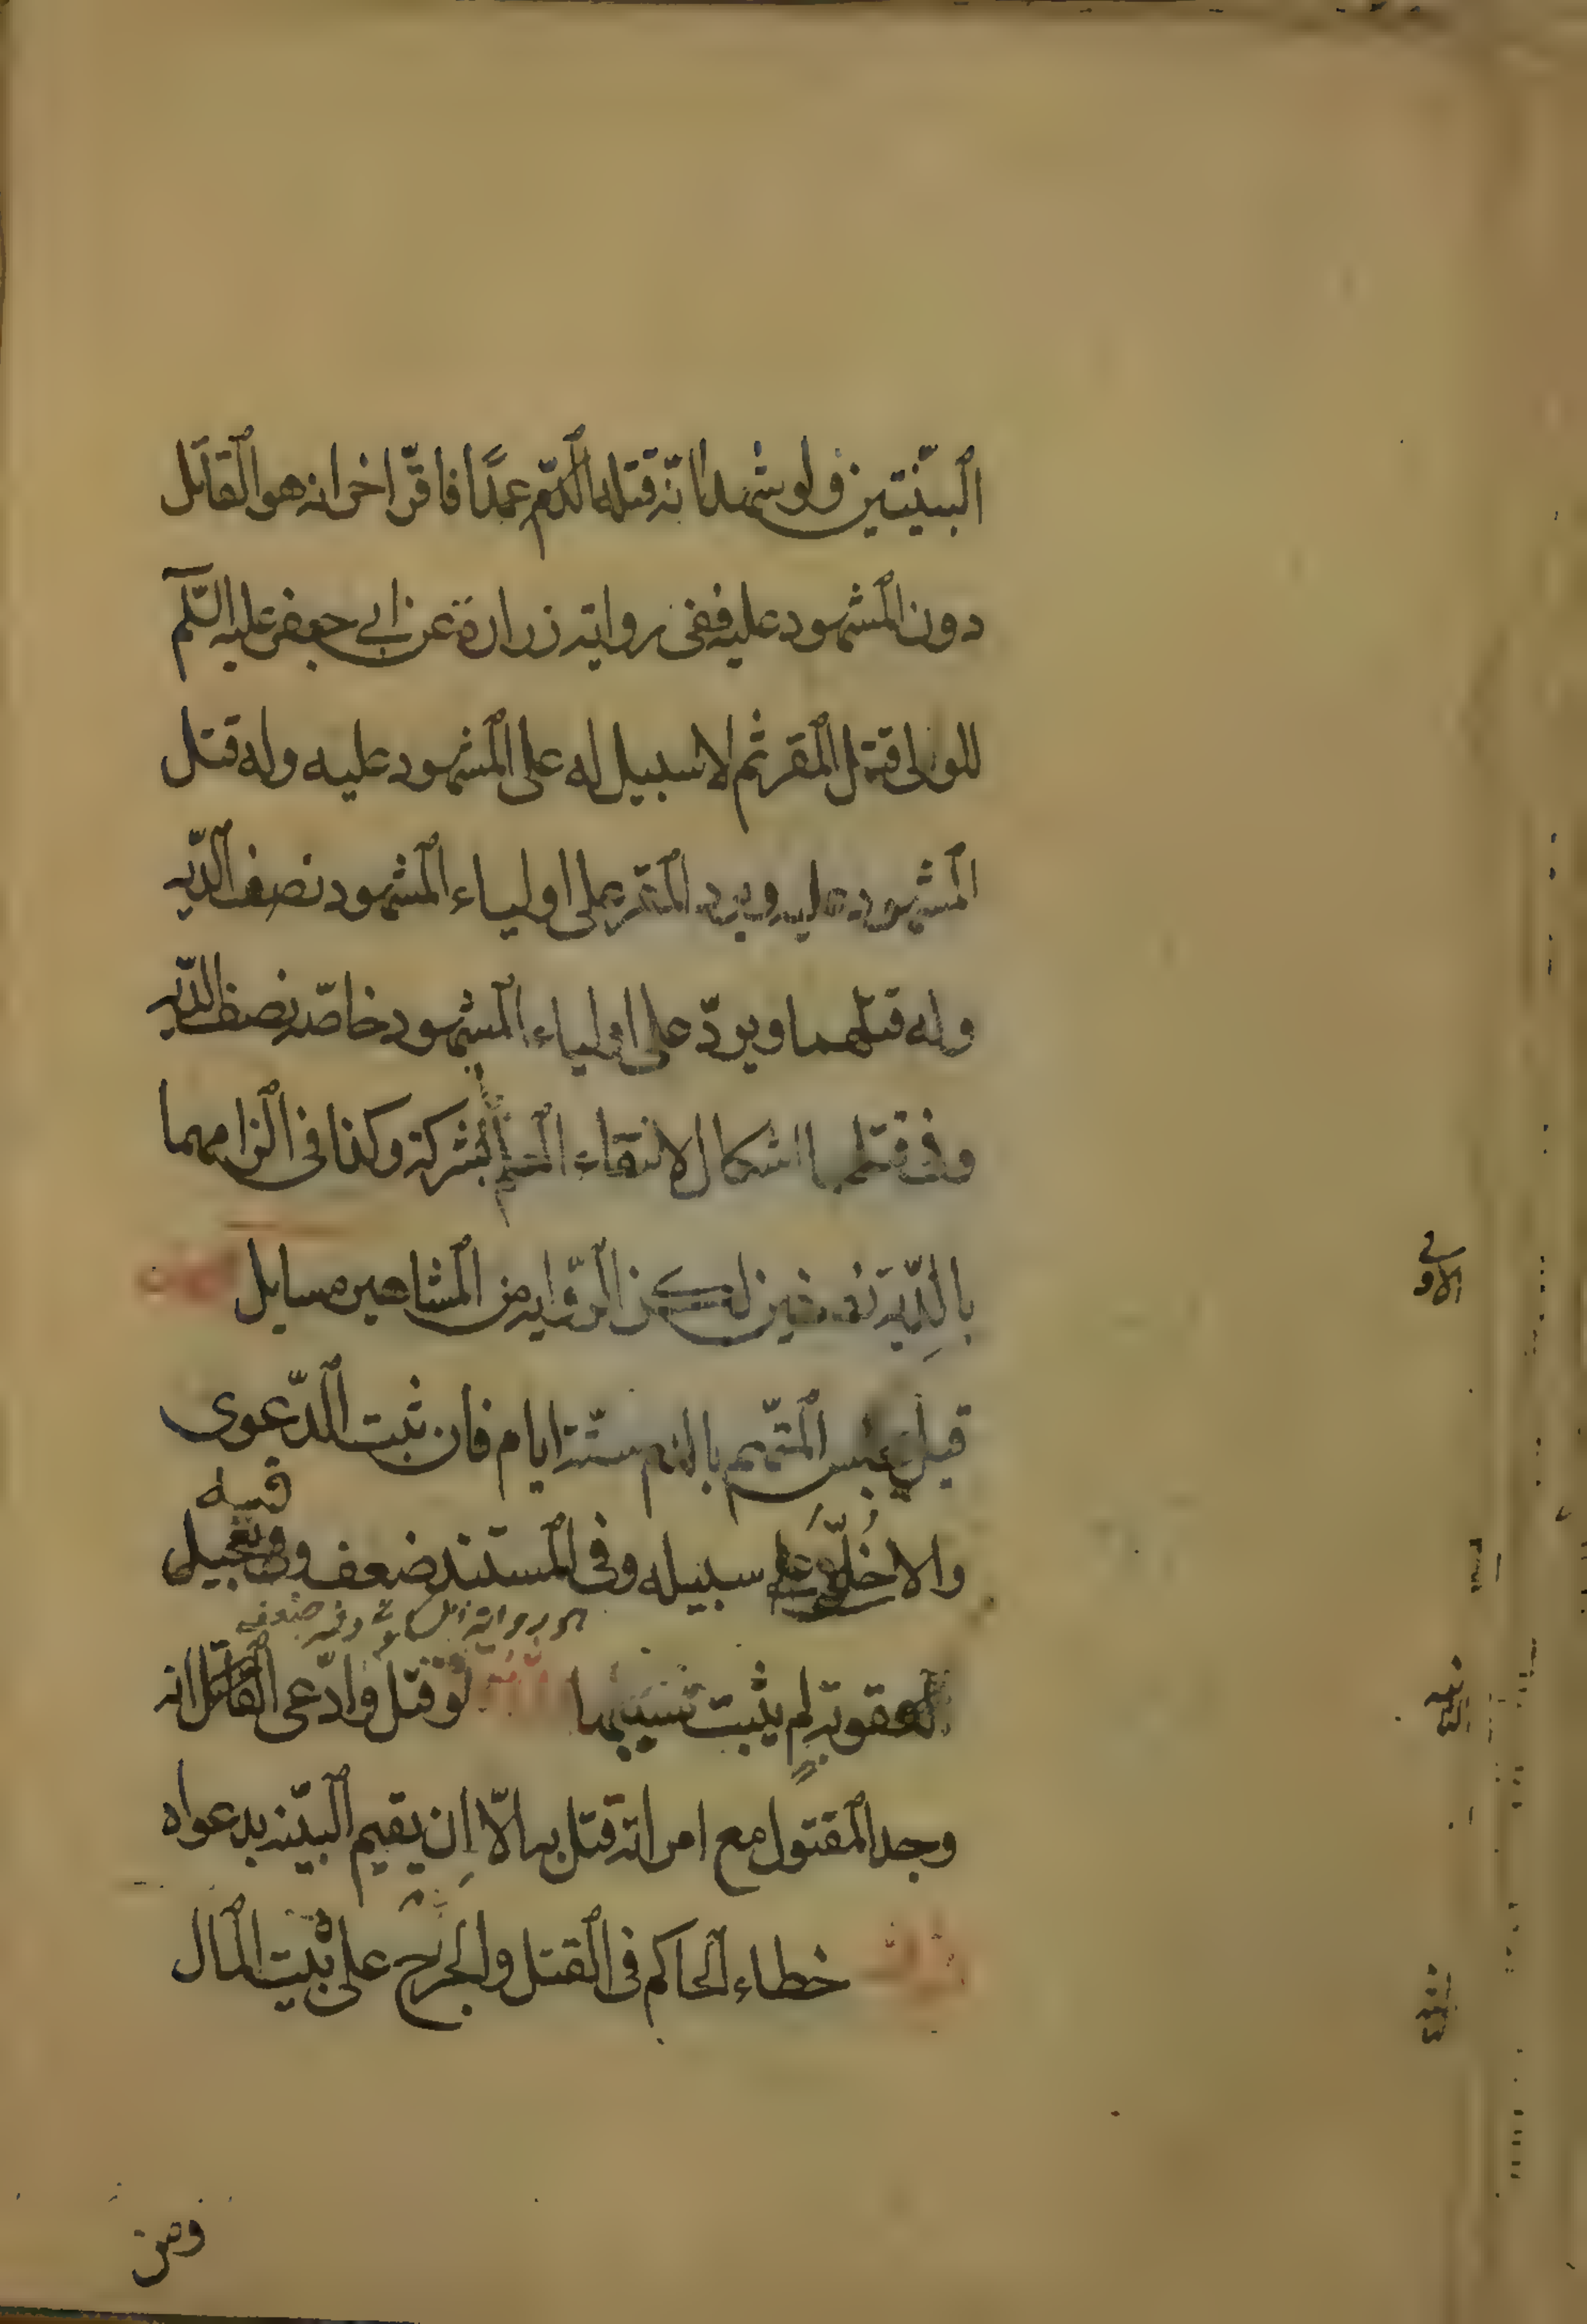 البيّنتين ولو شهدا انّه قتله عمدًا فاقرّ اخر انه هو القاتل
دون المشهود عليه ففى رواية زرارة عن ابي جعفر عليه السّلم
للولى قتل المقر ثم لا سبيل له على المشهود عليه وله قتل
المشهود عليه ويرد المقر على اولياء المشهود نصف الدّية
وله قتلهما ويردّ على اولياء المشهود خاصّة نصف الدّية
وفى قتلهما اشكال لانتفاء العلم بالشركة وكذا فى الزامهما
بالدّية نصفين لكن الرّواية من المشاهير مسايل
قيل يحبس المتّهم بالدم ستّة ايام فان ثبت الدّعوى
والا خلّى سبيله وفى المستند ضعف وفى تعجيل
العقوبة لم يثبت سببها لو قتل وادّعى القاتل انه
وجد المقتول مع امراته قتل به الّا ان يقيم البيّنة بدعواه
خطاء الحاكم فى القتل والجرح على بيت المال
ومن